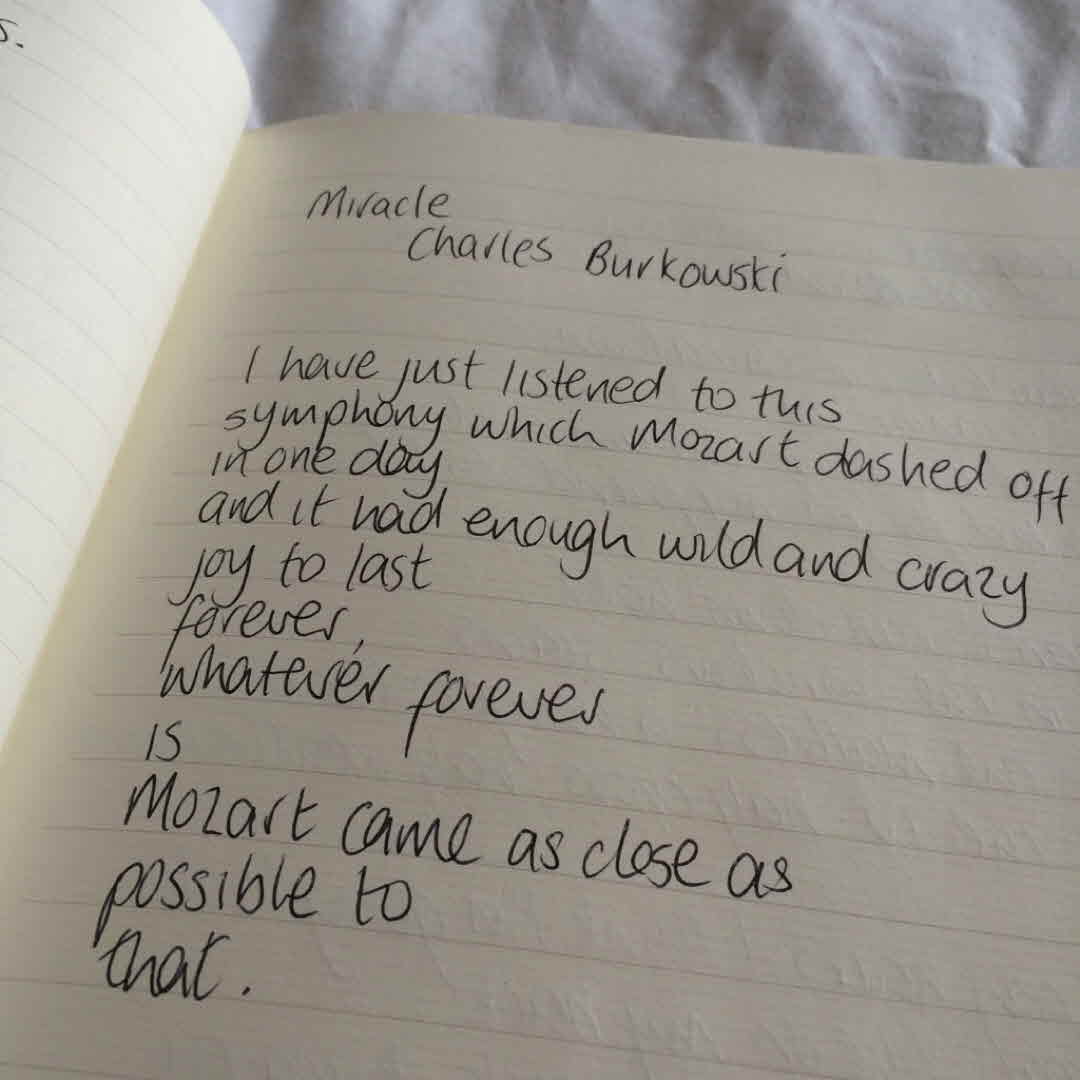 s.
Miracle
Charles Burkowski
I have just listened to this
symphony which Mozart dashed off
in one day
and it had enough wild and crazy
joy to last
forever,
whatever forever
is
Mozart came as close as
possible to
that.